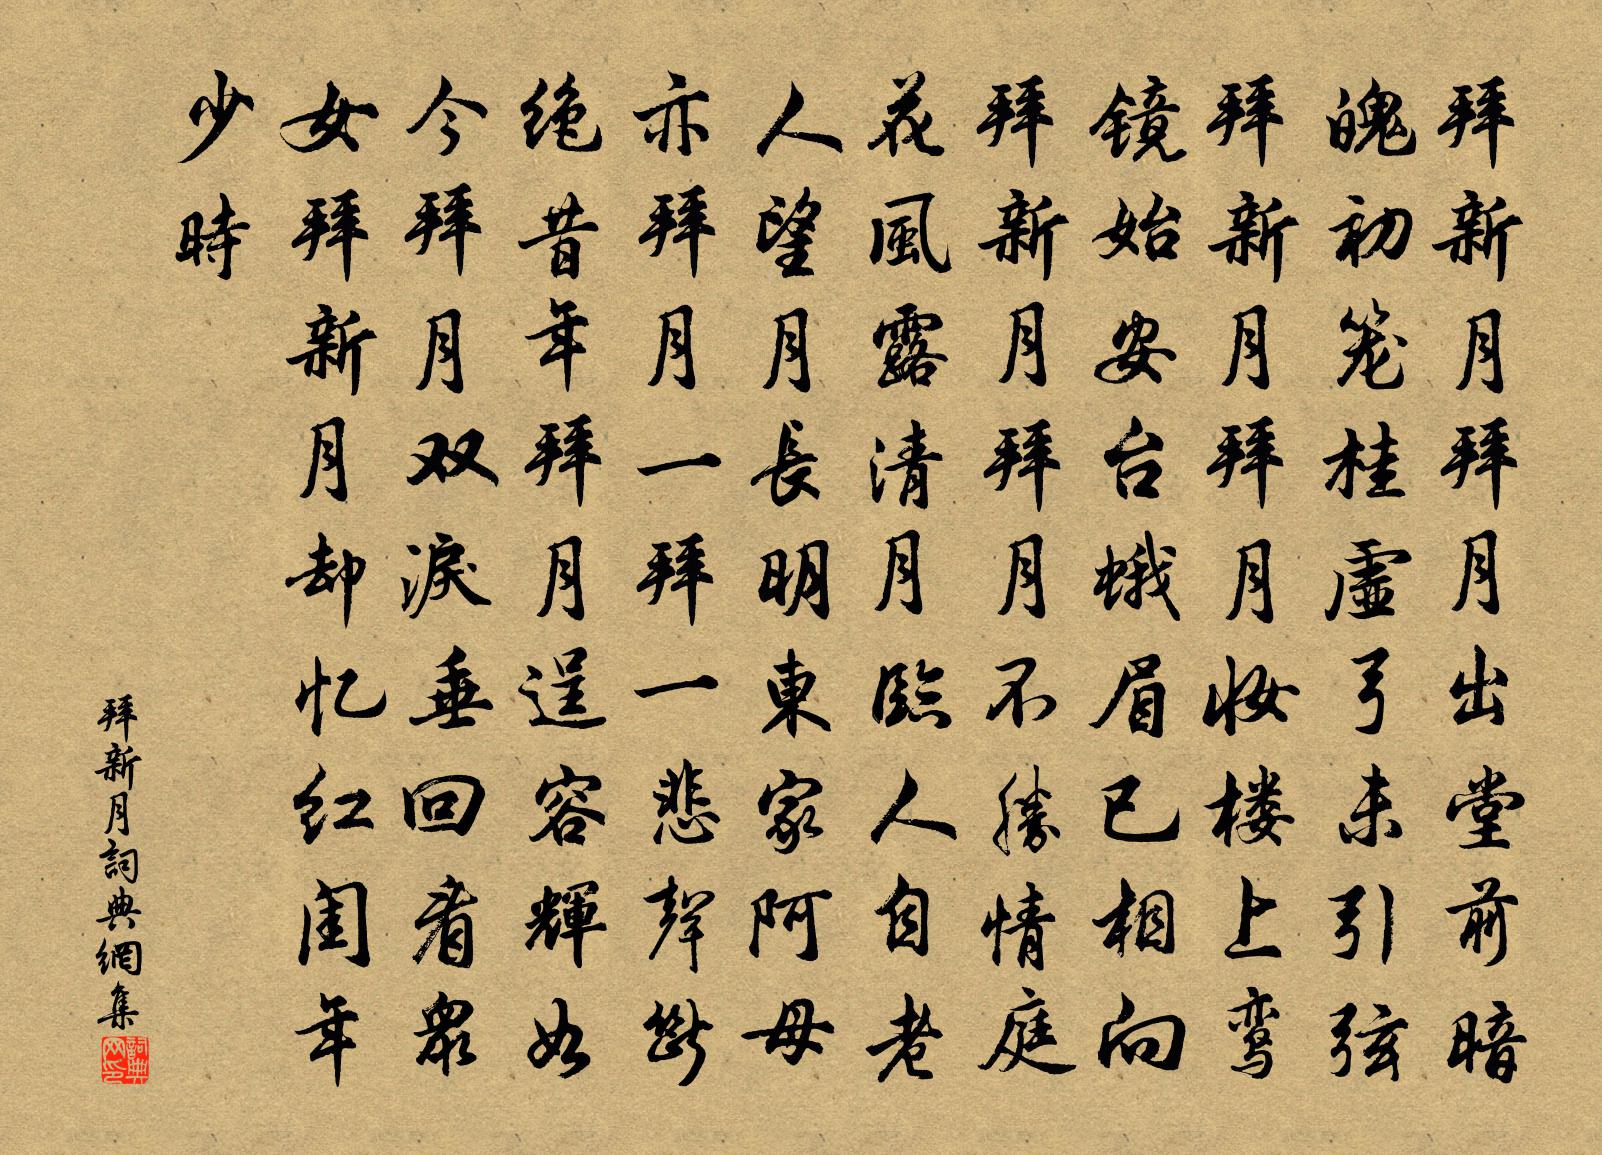 拜新月拜月出堂前暗
魄初笼桂虛弓未引弦
拜新月拜月妆楼上鸾
镜始安台蛾眉已相向
拜新月拜月不勝情庭
花風露清月臨人自老
人望月長明東家阿母
亦拜月一拜一悲聲斷
绝昔年拜月逞容輝如
今拜月双淚垂回看眾
女拜新月却忆红闺年
少時
拜新月詞典網集
詞典网印